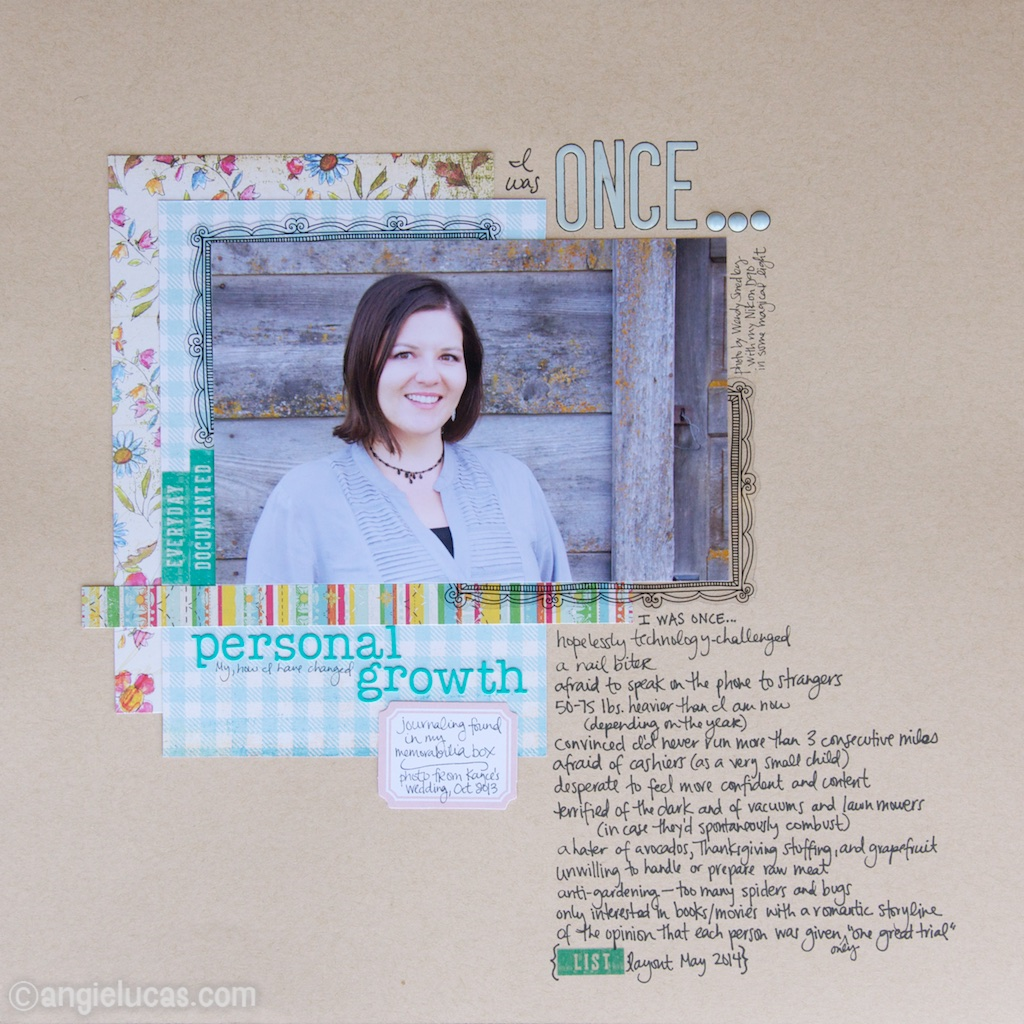 I was ONCE...
photo by Wendy Smedley
with my Nikon D90
in some magical light
EVERYDAY
DOCUMENTED
personal
My, how I have changed
growth
journaling found
in my
memorabilia box
photo from Kayce's
wedding, Oct 2013
I WAS ONCE...
hopelessly technology-challenged
a nail biter
afraid to speak on the phone to strangers
50-75 lbs. heavier than I am now
(depending on the year)
convinced I'd never run more than 3 consecutive miles
afraid of cashiers (as a very small child)
desperate to feel more confident and content
terrified of the dark and of vacuums and lawn mowers
(in case they'd spontaneously combust)
a hater of avocados, Thanksgiving stuffing, and grapefruit
unwilling to handle or prepare raw meat
anti-gardening—too many spiders and bugs
only interested in books/movies with a romantic storyline
of the opinion that each person was given only "one great trial"
{LIST layout May 2014}
©angielucas.com